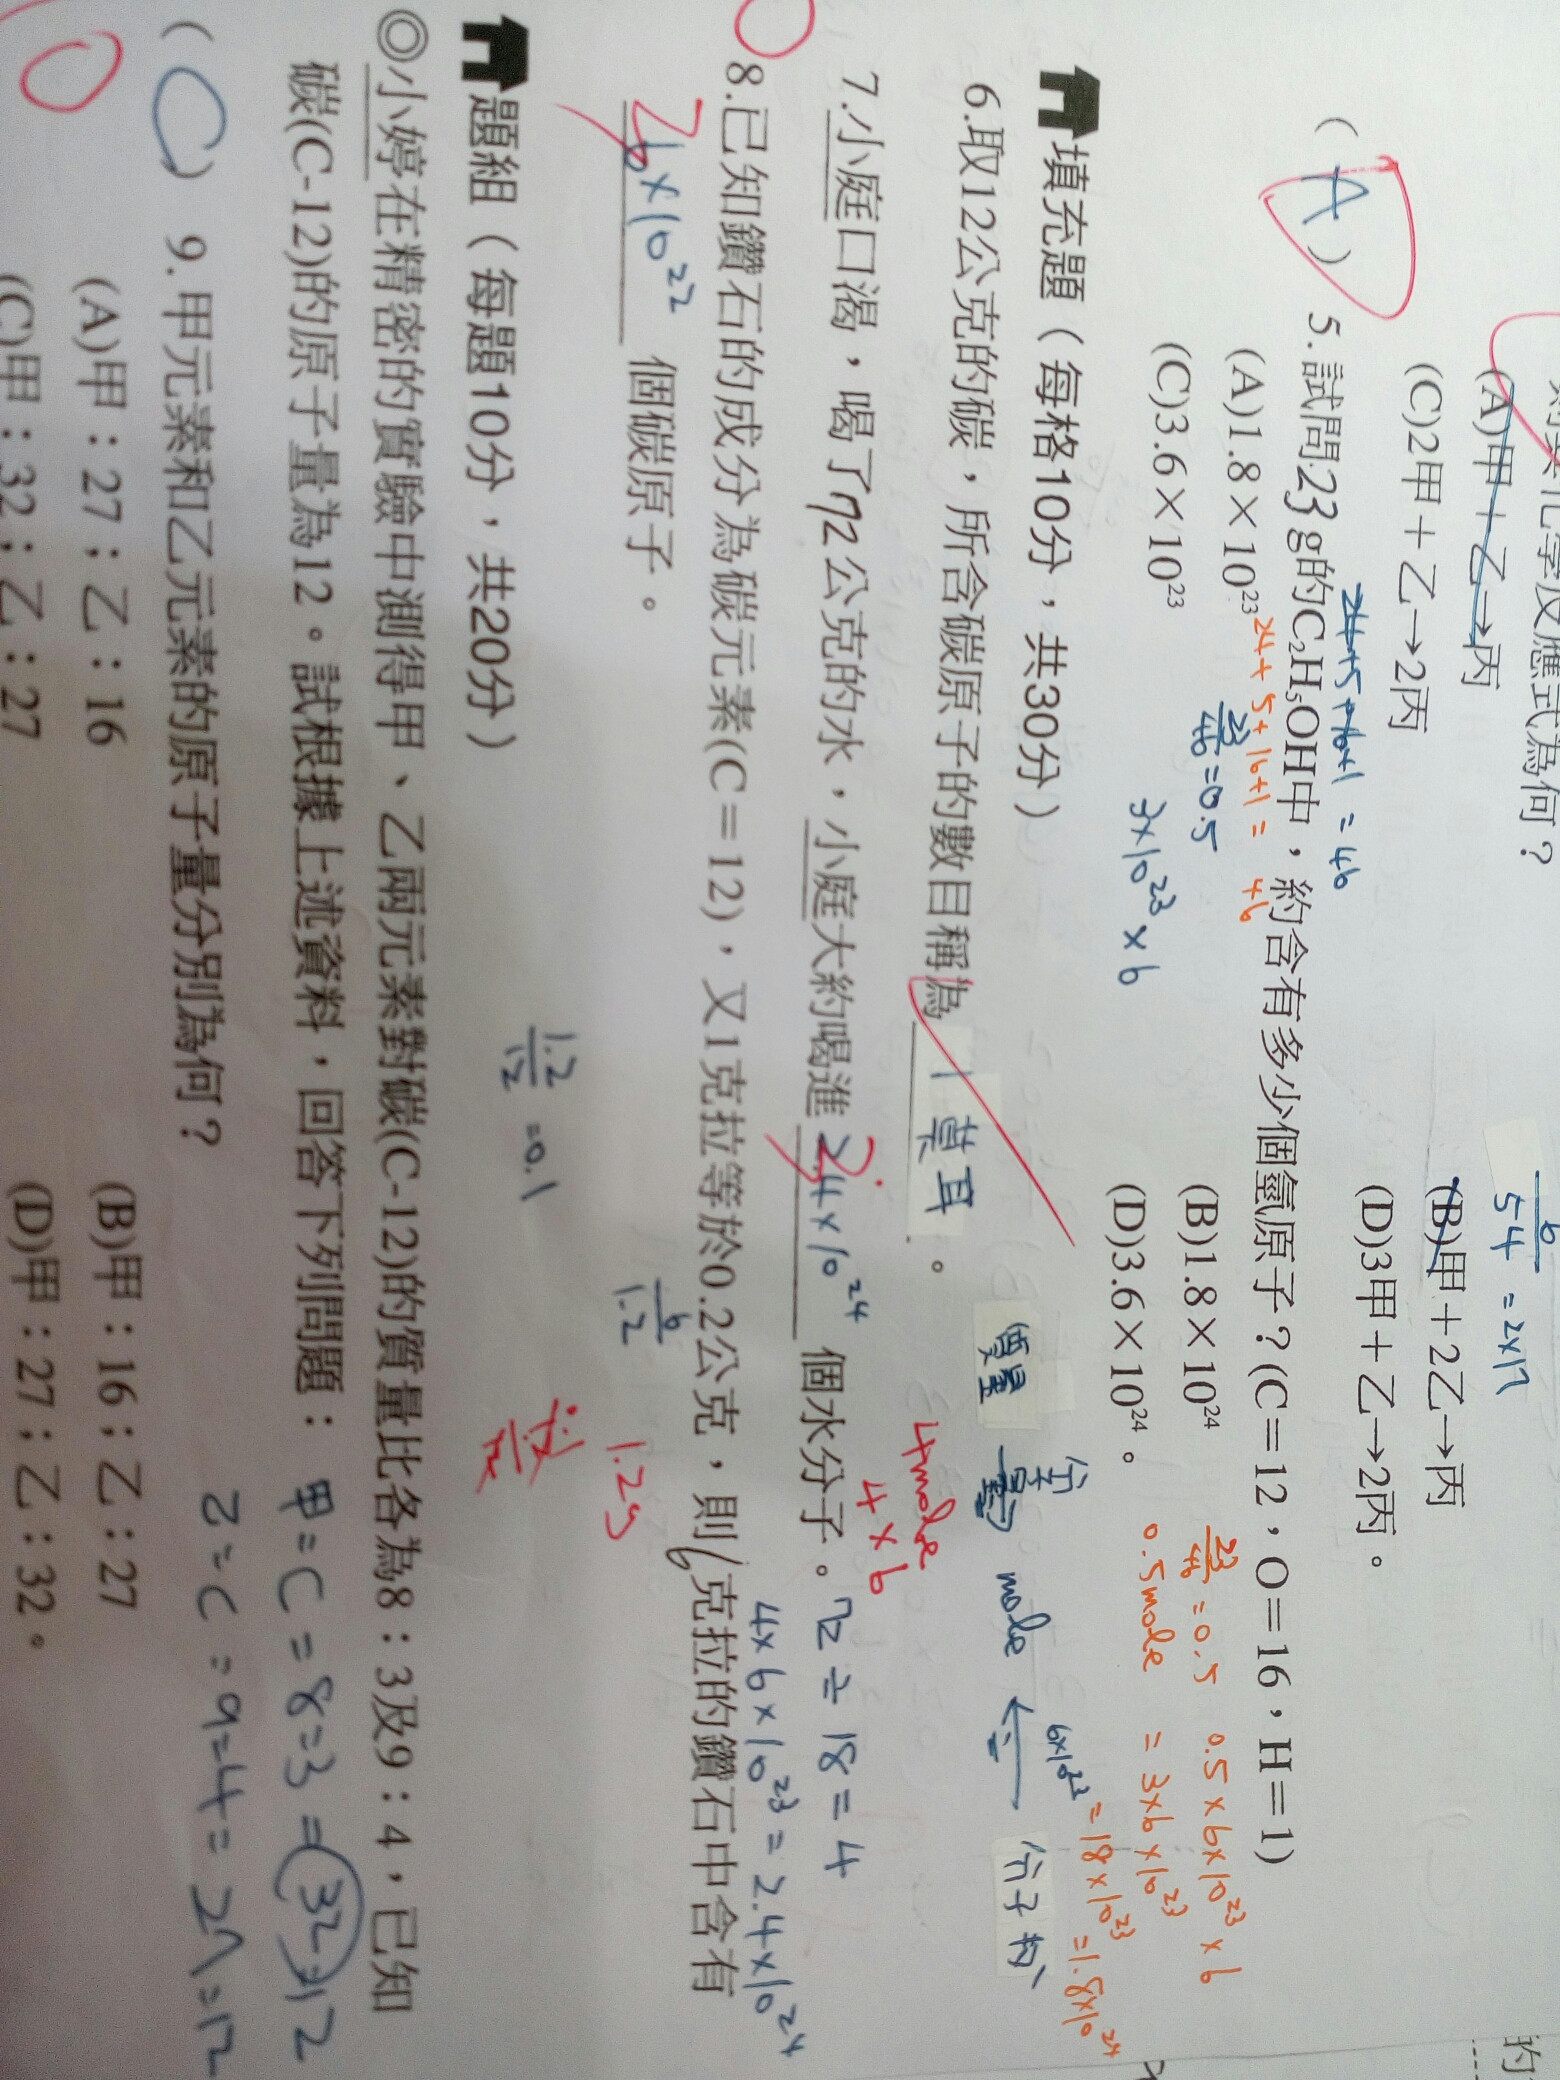 則其化學反應式為何？
(A)甲＋乙→丙
(B)甲＋2乙→丙
(C)2甲＋乙→2丙
(D)3甲＋乙→2丙。
6
54 = 2×17
24+5+16+1 = 46
( A ) 5.試問23 g的C₂H₅OH中，約含有多少個氫原子？(C＝12，O＝16，H＝1)
24+5+16+1= 46
(A)1.8×10²³
(B)1.8×10²⁴
23/46 = 0.5
23/46 = 0.5 0.5×6×10²³×6
(C)3.6×10²³
(D)3.6×10²⁴。
3×10²³×6
0.5mole = 3×6×10²³
= 18×10²³ = 1.8×10²⁴
填充題（每格10分，共30分）
分子量
質量 mole
6×10²³
分子數
6.取12公克的碳，所含碳原子的數目稱為 1 莫耳 。
4mole
4×6
7.小庭口渴，喝了72公克的水，小庭大約喝進 2.4×10²⁴ 個水分子。
72÷18=4
4×6×10²³=2.4×10²⁴
8.已知鑽石的成分為碳元素(C＝12)，又1克拉等於0.2公克，則6克拉的鑽石中含有
6×10²² 個碳原子。
6
1.2
1.2g
1.2/12 = 0.1
題組（每題10分，共20分）
◎小婷在精密的實驗中測得甲、乙兩元素對碳(C-12)的質量比各為8：3及9：4，已知
碳(C-12)的原子量為12。試根據上述資料，回答下列問題：
甲=C=8=3=32=12
乙=C=9=4=27=12
( C ) 9.甲元素和乙元素的原子量分別為何？
(A)甲：27；乙：16
(B)甲：16；乙：27
(C)甲：32；乙：27
(D)甲：27；乙：32。
的